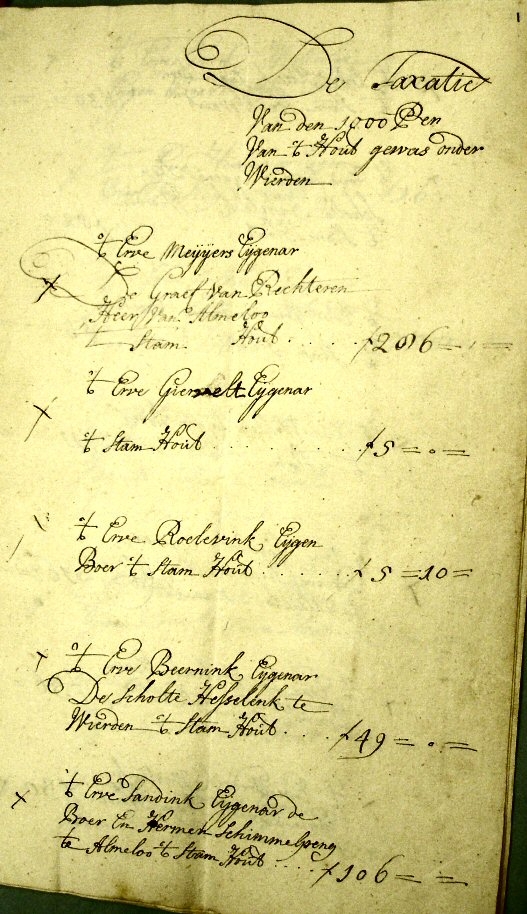 1
De Taxatie
Van den 1000 Pen
Van 't Hout gewas onder
Wierden
't Erve Meijers Eijgenar
De Graef Van Rechteren
Heer Van Almeloo
Stam Hout . . . . f 206 = . =
't Erve Giermelt Eijgenar
't Stam Hout . . . . . . . f 5 = 0 =
't Erve Roelevink Eijgen
Boer 't Stam Hout . . . . . . f 5 = 10 =
't Erve Beernink Eijgenar
De Scholte Hesselink te
Wierden 't Stam Hout . . . f 49 = 0 =
't Erve Tandink Eijgenar de
Boer En Hermen Schimmelpeng
te Almeloo 't Stam Hout . . . . f 106 = =